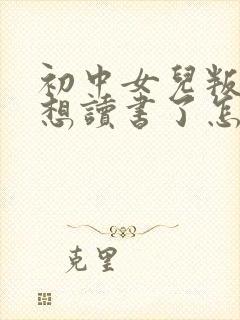 初中女兒叛
想讀書了怎
克里